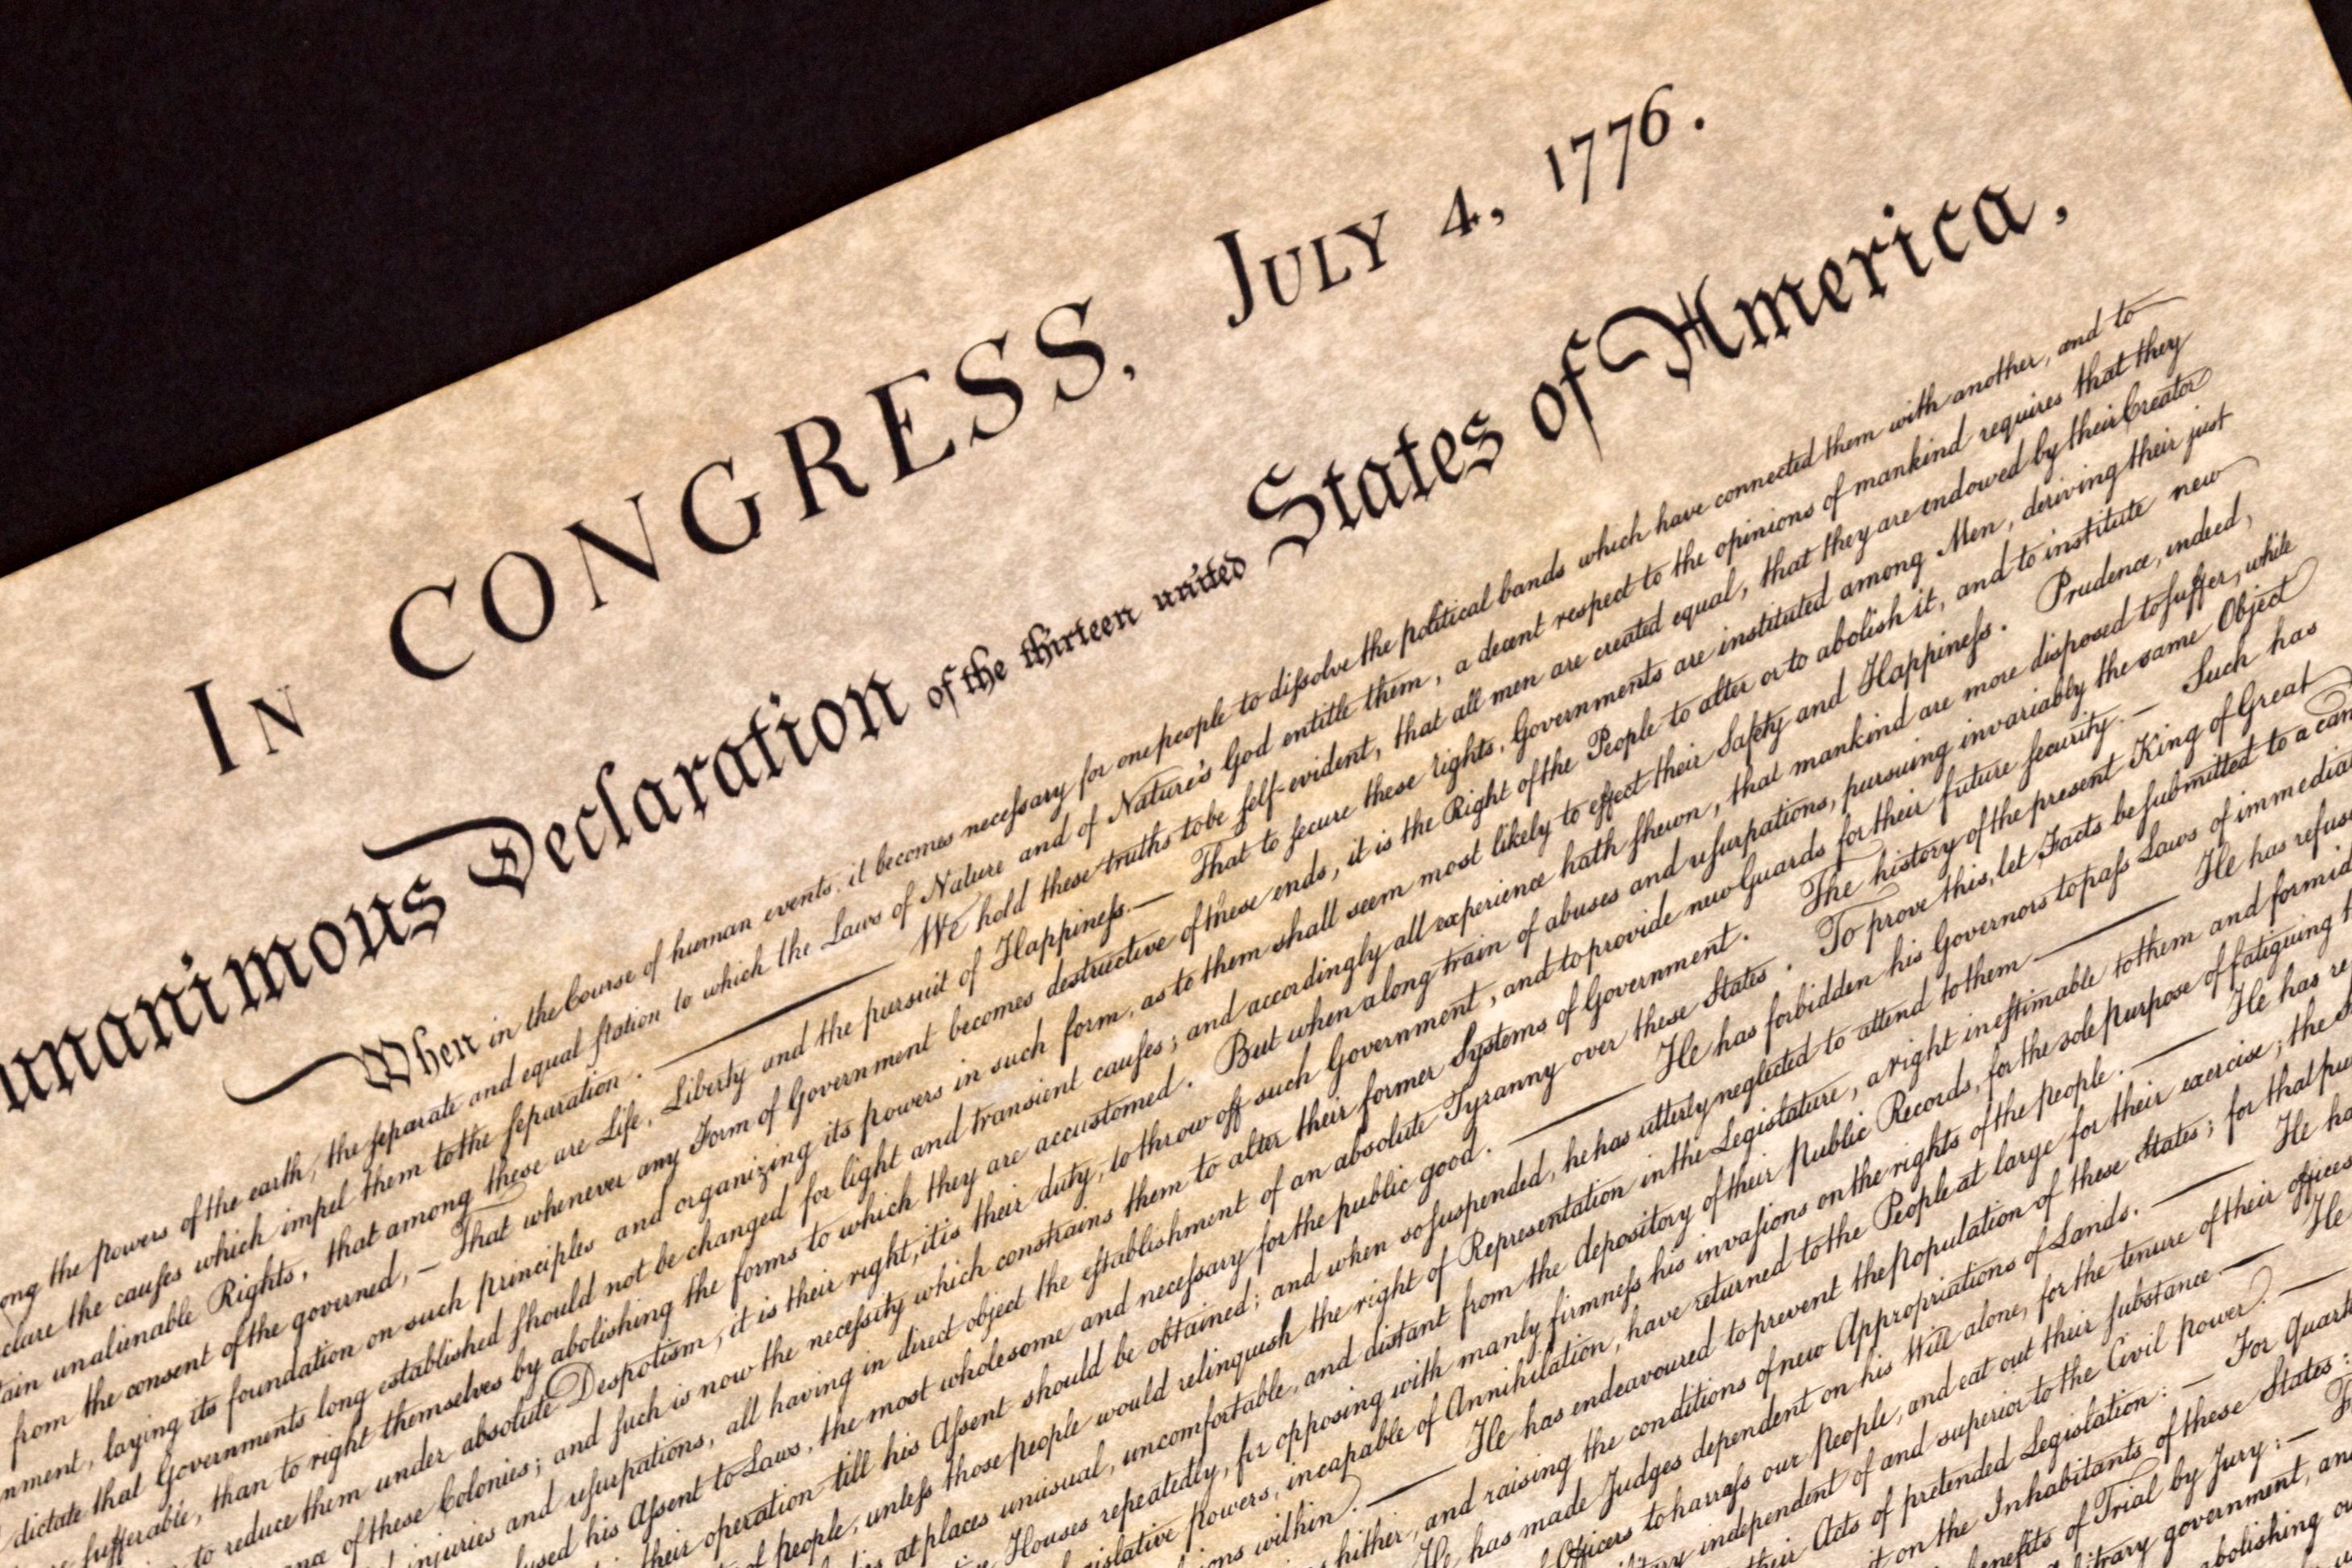 IN CONGRESS, JULY 4, 1776.
unanimous Declaration of the thirteen united States of America,
When in the Course of human events, it becomes necessary for one people to dissolve the political bands which have connected them with another, and to
ong the powers of the earth, the separate and equal station to which the Laws of Nature and of Nature's God entitle them, a decent respect to the opinions of mankind requires that they
clare the causes which impel them to the separation. — We hold these truths to be self-evident, that all men are created equal, that they are endowed by their Creator
tain unalienable Rights, that among these are Life, Liberty and the pursuit of Happiness.— That to secure these rights, Governments are instituted among Men, deriving their just
from the consent of the governed, — That whenever any Form of Government becomes destructive of these ends, it is the Right of the People to alter or to abolish it, and to institute new
nment, laying its foundation on such principles and organizing its powers in such form, as to them shall seem most likely to effect their Safety and Happiness. Prudence, indeed,
dictate that Governments long established should not be changed for light and transient causes; and accordingly all experience hath shewn, that mankind are more disposed to suffer, while
sufferable, than to right themselves by abolishing the forms to which they are accustomed. But when a long train of abuses and usurpations, pursuing invariably the same Object
to reduce them under absolute Despotism, it is their right, it is their duty, to throw off such Government, and to provide new Guards for their future security.— Such has
ance of these Colonies; and such is now the necessity which constrains them to alter their former Systems of Government. The history of the present King of Great
injuries and usurpations, all having in direct object the establishment of an absolute Tyranny over these States. To prove this, let Facts be submitted to a can
used his Assent to Laws, the most wholesome and necessary for the public good. — He has forbidden his Governors to pass Laws of immedia
their operation till his Assent should be obtained; and when so suspended, he has utterly neglected to attend to them — He has refus
of people, unless those people would relinquish the right of Representation in the Legislature, a right inestimable to them and formid
at places unusual, uncomfortable, and distant from the depository of their public Records, for the sole purpose of fatiguing
Houses repeatedly, for opposing with manly firmness his invasions on the rights of the people. — He has re
islative powers, incapable of Annihilation, have returned to the People at large for their exercise; the
ions within. — He has endeavoured to prevent the population of these States; for that pu
hither, and raising the conditions of new Appropriations of Lands. — He ha
He has made Judges dependent on his Will alone, for the tenure of their offices
Officers to harrass our people, and eat out their substance. — He
independent of and superior to the Civil power. —
their Acts of pretended Legislation: — For Quart
on the Inhabitants of these States:
benefits of Trial by Jury: —
government, an
abolishing